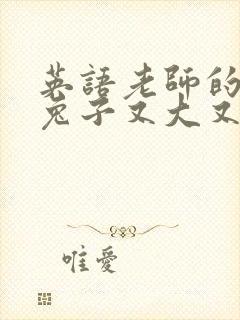 英語老師的
兔子又大又
唯愛